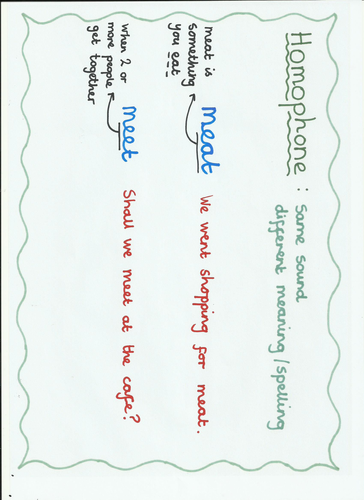 Homophone : Same sound
different meaning/spelling
meat is
something
you eat
meat
We went shopping for meat.
when 2 or
more people
get together
meet
Shall we meet at the cafe?